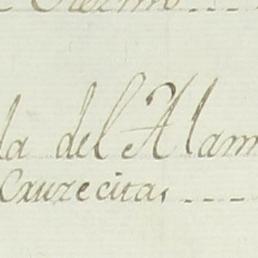 da del Alam
Cruzecitas